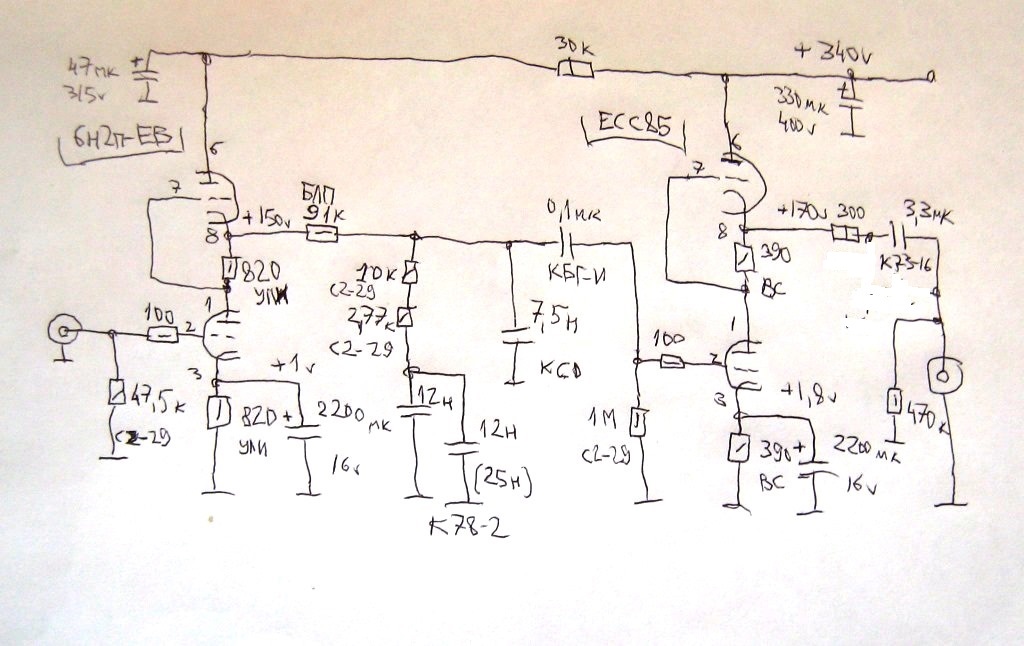 30к
+ 340v
47мк
315v
+
330мк
400v
+
6Н2П-ЕВ
ECC85
6
7
БЛП
91к
+150v
8
820
УЛИ
0,1мк
КБГ-И
6
7
+170v
300
3,3мк
К73-16
8
390
ВС
10к
С2-29
2,77к
С2-29
7,5н
КСО
100
1
2
3
+1v
47,5к
С2-29
820
УЛИ
+
2200
мк
16v
12н
12н
(25н)
К78-2
100
1
2
3
+1,8v
1М
С2-29
390
ВС
+
2200мк
16v
470к